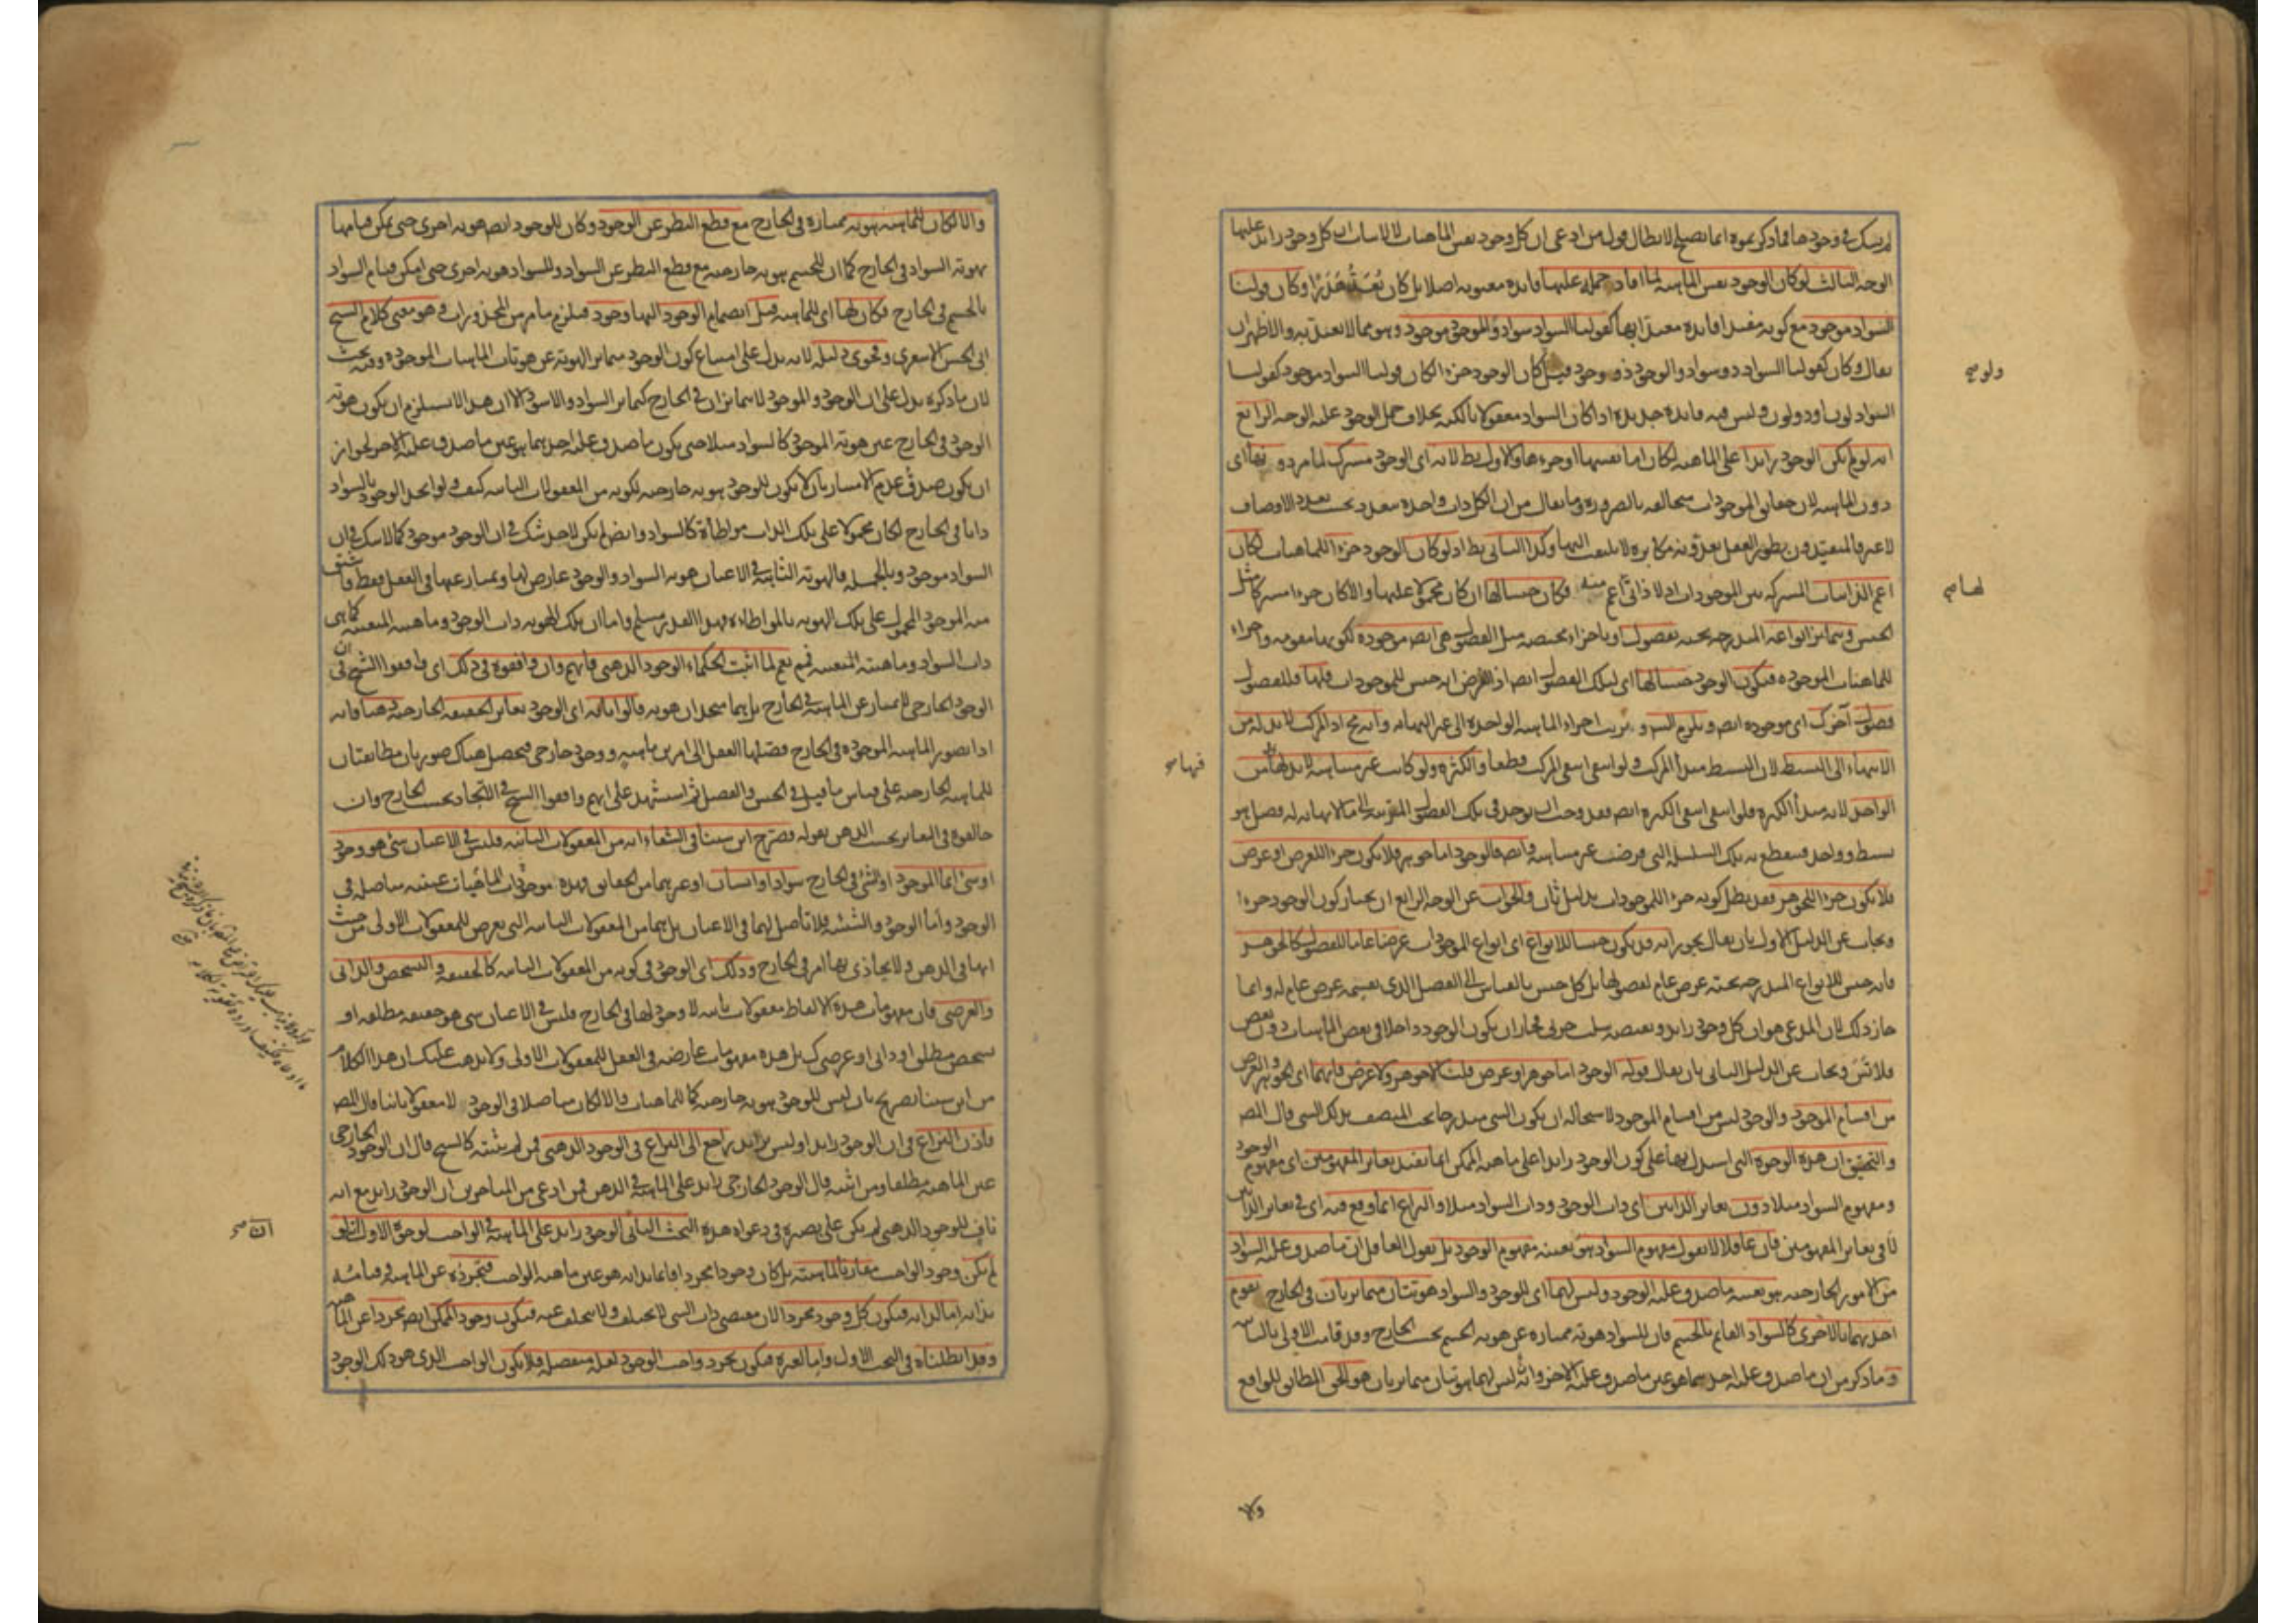 لم يشك في وجودها فما ذكرتموه انما يصلح لابطال قول من ادعى ان كل وجود نفس الماهيات لا لاثبات ان كل وجود زائد عليها
الوجه الثالث لو كان الوجود نفس الماهية لما افاد حمله عليها فائدة معنوية اصلا بل كان يُعَدُّ هَذَرًا وكان قولنا
السواد موجود مع كونه مفيدا فائدة معتدا بها كقولنا السواد سواد والموجود موجود وهو مما لا يعتد به والاظهر ان
يقال وكان كقولنا السواد ذو سواد والوجود ذو وجود فيل كان الوجود جزءا لكان قولنا السواد موجود كقولنا
السواد لون او ذو لون وليس فيه فائدة جديدة اذا كان السواد معقولا بالكنه بخلاف حمل الوجود عليه الوجه الرابع
انه لو لم يكن الوجود زائدا على الماهية لكان اما نفسها او جزءها والاول بط لانه اى الوجود مشترك لما مر دونها اى
دون الماهية لان حقايق الموجودات متخالفة بالضرورة وما يقال من ان الكل ذات واحدة تتعدد بحسب تعدد الاوصاف
لا غير فالمتقيدون بطور العقل يعدونه مكابرة لا يلتفت اليها وكذا الثاني بط اذ لو كان الوجود جزءا للماهيات لكان
اعم الذاتيات المشتركة بين الموجودات اذ لا ذاتي اعم منه فكان جنسا لها ان كان محمولا عليها والا كان جزءا مشتركا مثل
الجنس وتتمايز انواعه المندرجة تحته بفصول او باجزاء مختصة مثل الفصول هي ايضا موجودة لكونها مقومة واجزاء
للماهيات الموجودة فيكون الوجود جنسا لها اى لتلك الفصول ايضا اذ الفرض انه جنس للموجودات فلها فللفصول
فصول آخر كـ اى موجودة ايضا ويلزم التس وترتب اجزاء الماهية الواحدة الى غير النهاية وانه مح اذ المركب لا بد له من
الانتهاء الى البسيط لان البسيط مبدأ المركب ولو انتفى انتفى المركب قطعا والكثرة ولو كانت غير متناهية لا بد لها من
الواحد لانه مبدأ الكثرة فلو انتفى انتفى الكثرة ايضا فقد وجب ان يوجد في تلك الفصول المترتبة الى ما لا نهاية له فصل هو
بسيط وواحد فتنقطع به تلك السلسلة التي فرضت غير متناهية وايضا فالوجود اما جوهر فلا يكون جزءا للعرض او عرض
فلا يكون جزءا للجوهر فقد بطل كونه جزءا للموجودات بدليل ثان والجواب عن الوجه الرابع ان يختار كون الوجود جزءا
ويجاب عن الدليل الاول بان يقال يجوز انه قد يكون جنسا للانواع اى انواع الموجودات عرضا عاما للفصول كالجوهر
فانه جنس للانواع المندرجة تحته عرض عام لفصولها بل كل جنس بالقياس الى الفصل الذي يقسمه عرض عام له وانما
جاز ذلك لان المدعى هو ان كل وجود زائد ونقيضه سلب جزئي فجاز ان يكون الوجود داخلا في بعض الماهيات دون بعض
فلا تس ويجاب عن الدليل الثاني بان يقال قوله الوجود اما جوهر او عرض قلنا لا جوهر ولا عرض فانهما اى الجوهر والعرض
من اقسام الموجود والوجود ليس من اقسام الموجود لاستحالة ان يكون الشي مندرجا تحت المتصف بذلك الشي قال المص
والتحقيق ان هذه الوجوه التي استدل بها على كون الوجود زائدا على ماهية الممكن انما تفيد تغاير المفهومين اى مفهوم الوجود
ومفهوم السواد مثلا دون تغاير الذاتين اى ذات الوجود وذات السواد مثلا والنزاع انما وقع فيه اى في تغاير الذاتين
لا في تغاير المفهومين فان عاقلا لا يقول مفهوم السواد هو بعينه مفهوم الوجود بل يقول العاقل ان ما صدق عليه السواد
من الامور الخارجية هو بعينه ما صدق عليه الوجود وليس لهما اى للوجود والسواد هويتان متمايزتان في الخارج تقوم
احديهما بالاخرى كالسواد القائم بالجسم فان للسواد هوية ممتازة عن هوية الجسم بحسب الخارج وقد قامت الاولى بالثانية
وما ذكر من ان ما صدق عليه احدهما هو عين ما صدق عليه الاخر وانه ليس لهما هويتان متمايزتان هو الحق المطابق للواقع
ولو صح
لها صح
فيها صح
ولا
والا لكان للماهية هوية ممتازة في الخارج مع قطع النظر عن الوجود وكان للوجود ايضا هوية اخرى حتى يمكن قيامها
بهوية السواد في الخارج كما ان للجسم هوية خارجية مع قطع النظر عن السواد وللسواد هوية اخرى حتى امكن قيام السواد
بالجسم في الخارج فكان لها اى للماهية قبل انضمام الوجود اليها وجود فيلزم ما مر من المحذورات وهو معنى كلام الشيخ
ابي الحسن الاشعري وفحوى دليله لانه يدل على امتناع كون الوجود متمايز الهوية عن هويات الماهيات الموجودة وفيه بحث
لان ما ذكره يدل على ان الوجود والموجود لا يتمايزان في الخارج كتمايز السواد والاسود الا ان هذا لا يستلزم ان يكون هوية
الوجود في الخارج عين هوية الموجود كالسواد مثلا حتى يكون ما صدق عليه احدهما هو عين ما صدق عليه الاخر لجواز
ان يكون صدق عدم الامتياز بان لا يكون للوجود هوية خارجية لكونه من المعقولات الثانية كيف ولو اتحد الوجود بالسواد
ذاتا في الخارج لكان محمولا على تلك الذات مواطأة كالسواد وايضا لم يكن لاحد شك في ان الوجود موجود كما لا شك في ان
السواد موجود وبالجملة فالهوية الثابتة في الاعيان هوية السواد والوجود عارض لها ويمتاز عنها في العقل فقط فاشتق
منه الموجود المحمول على تلك الهوية بالمواطاة فهذا القدر مسلم واما ان تلك الهوية ذات الوجود وماهيته المتعينة كما هي
ذات السواد وماهيته المتعينة فمم نعم لما اثبت الحكماء الوجود الذهني فانهم وان وافقوه في ذلك اى وافقوا الشيخ في ان
الوجود الخارجي لا يمتاز عن الماهية في الخارج بل هما متحدان هوية قالوا بانه اى الوجود يغاير الحقيقة الخارجية ذهنا فانه
اذا تصور الماهية الموجودة في الخارج فصلها العقل الى امرين ماهية ووجود خارجي فتحصل هناك صورتان مطابقتان
للماهية الخارجية على قياس ما قيل في الجنس والفصل ثم استشهد على انهم وافقوا الشيخ في الاتحاد بحسب الخارج وان
خالفوه في التغاير بحسب الذهن بقوله فصرح ابن سينا في الشفاء انه من المعقولات الثانية فليس في الاعيان شئ هو وجود
او شئ انما الموجود او الشئ في الخارج سواد او انسان او غيرهما من الحقايق فهذه موجودات الماهيات عينية متاصلة في
الوجود واما الوجود والشيئية فلا تأصل لهما في الاعيان بل هما من المعقولات الثانية التي تعرض للمعقولات الاولى من حيث
انها في الذهن ولا يحاذى بها امر في الخارج وذلك اى الوجود في كونه من المعقولات الثانية كالحقيقة والتشخص والذاتي
والعرضي فان مفهومات هذه الالفاظ معقولات ثانية لا وجود لها في الخارج فليس في الاعيان شي هو حقيقة مطلقة او
تشخص مطلق او ذاتي او عرضي كـ بل هذه مفهومات عارضة في العقل للمعقولات الاولى ولا يذهب عليك ان هذا الكلام
من ابن سينا تصريح بان ليس للوجود هوية خارجية كما للماهيات والا لكان متاصلا في الوجود لا معقولا ثانيا قال المص
فاذن النزاع في ان الوجود زائد او ليس بزائد راجع الى النزاع في الوجود الذهني فمن لم يثبته كالشيخ قال ان الوجود الخارجي
عين الماهية مطلقا ومن اثبته قال الوجود الخارجي زائد على الماهية في الذهن فمن ادعى من المتاخرين ان الوجود زائد مع انه
ناف للوجود الذهني لم يكن على بصيرة في دعواه هذه البحث الثاني الوجود زائد على الماهية في الواجب لوجوه الاول انه لو
لم يكن وجود الواجب مقارنا لماهيته بل كان وجودا مجردا قائما بذاته هو عين ماهية الواجب فتجرده عن الماهية وقيامه
بذاته اما لذاته فيكون كل وجود مجردا لان مقتضى ذات الشي لا يختلف ولا يتخلف عنه فيكون وجود الممكن ايضا مجردا عن الماهية
وقد ابطلناه في البحث الاول واما لغيره فيكون تجرد واجب الوجود لعلة منفصلة فلا يكون الواجب الذي هو ذلك الوجود
ان صح